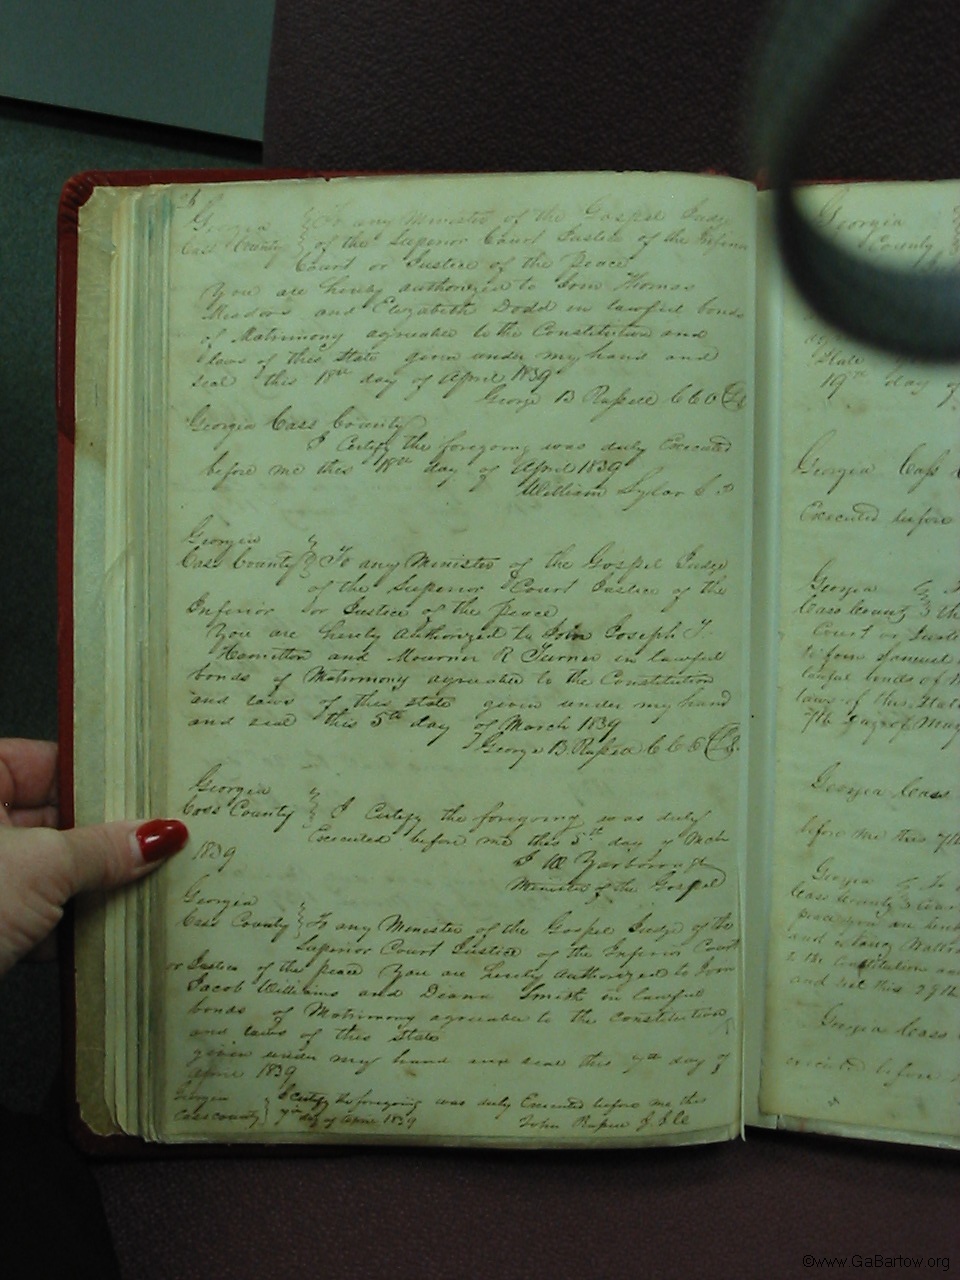 26
Georgia } To any Minister of the Gospel Judge
Cass County } of the Superior Court Justice of the Inferior
Court or Justice of the peace
You are hereby authorized to Join Thomas
Meadows and Elizabeth Dodd in lawful bonds
of Matrimony agreeable to the Constitution and
laws of this State given under my hand and
seal this 18th day of April 1839
George B Russell C C O (LS
Georgia Cass County
I Certify the foregoing was duly Executed
before me this 18th day of April 1839
William Sylar J P
Georgia }
Cass County } To any Minister of the Gospel Judge
of the Superior Court Justice of the
Inferior or Justice of the peace
You are hereby Authorized to Join Joseph T.
Hamilton and Mourner R Turner in lawful
bonds of Matrimony agreeable to the Constitution
and laws of this state given under my hand
and seal this 5th day of March 1839
George B. Russell C C O (LS.
Georgia }
Cass County } I Certify the foregoing was duly
Executed before me this 5th day of Mch
1839
J W Yarborough
Minister of the Gospel
Georgia }
Cass County } To any Minester of the Gospel Judge of the
Superior Court Justice of the Inferior Court
or Justice of the peace You are hereby Authorized to Join
Jacob Williams and Diana Smith in lawful
bonds of Matrimony agreeable to the constitution
and laws of this State
given under my hand and seal this 7th day of
April 1839
Georgia } I certify the foregoing was duly Executed before me this
Cass county } 7th day of April 1839 John Russell J.I.C
Georgia
County
State
19th day of
Georgia Cass
Executed before
Georgia
Cass County
Court or Justi
to Join Samuel
lawful bonds of M
laws of the Stat
7th day of May
Georgia Cass
before me this 7th
Georgia } To
Cass County }
and
to the Constitution an
and seal this 29th
Georgia Cass
executed before
©www.GaBartow.org